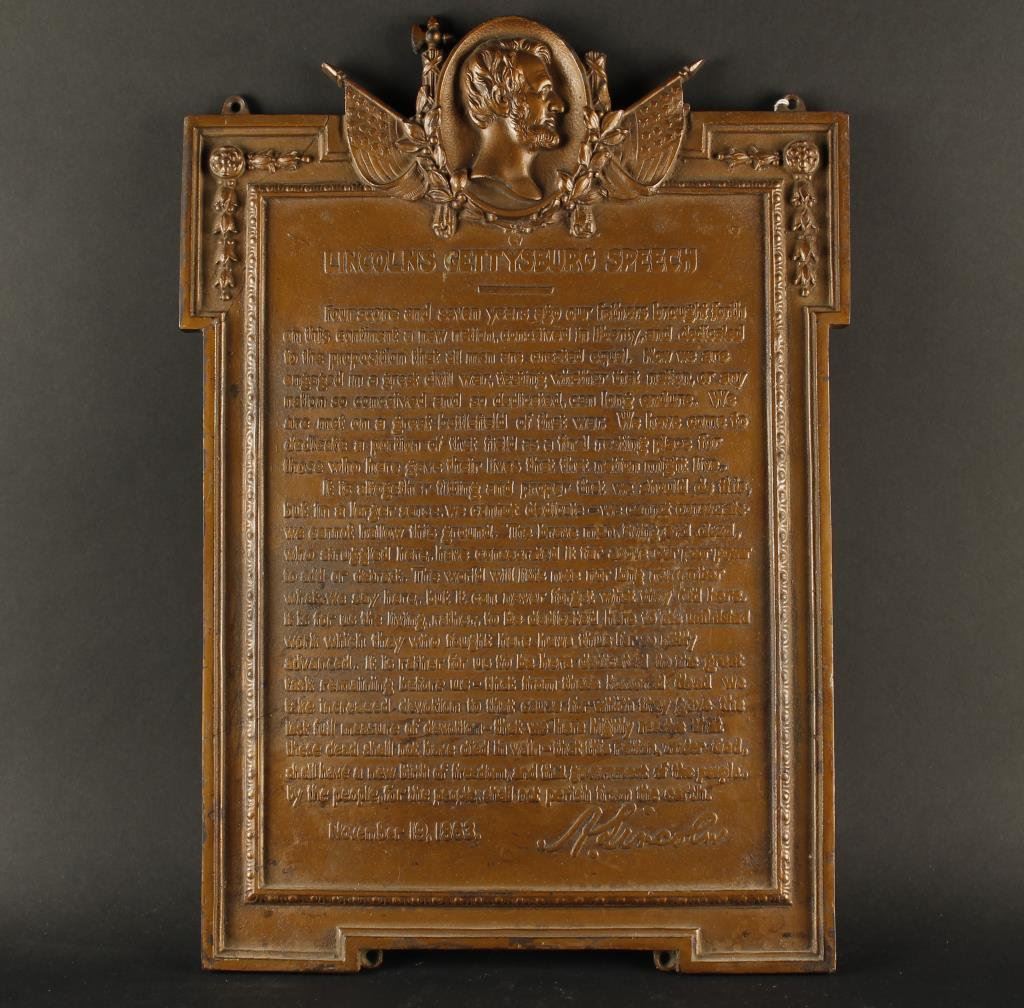 LINCOLN'S GETTYSBURG SPEECH
Fourscore and seven years ago our fathers brought forth
on this continent a new nation, conceived in liberty, and dedicated
to the proposition that all men are created equal. Now we are
engaged in a great civil war, testing whether that nation, or any
nation so conceived and so dedicated, can long endure. We
are met on a great battlefield of that war. We have come to
dedicate a portion of that field as a final resting place for
those who here gave their lives that that nation might live.
It is altogether fitting and proper that we should do this,
but in a larger sense we cannot dedicate—we cannot consecrate—
we cannot hallow this ground. The brave men, living and dead,
who struggled here, have consecrated it far above our poor power
to add or detract. The world will little note nor long remember
what we say here, but it can never forget what they did here.
It is for us the living, rather, to be dedicated here to the unfinished
work which they who fought here have thus far so nobly
advanced. It is rather for us to be here dedicated to the great
task remaining before us—that from these honored dead we
take increased devotion to that cause for which they gave the
last full measure of devotion—that we here highly resolve that
these dead shall not have died in vain—that this nation, under God,
shall have a new birth of freedom, and that government of the people,
by the people, for the people, shall not perish from the earth.
November 19, 1863.
A. Lincoln